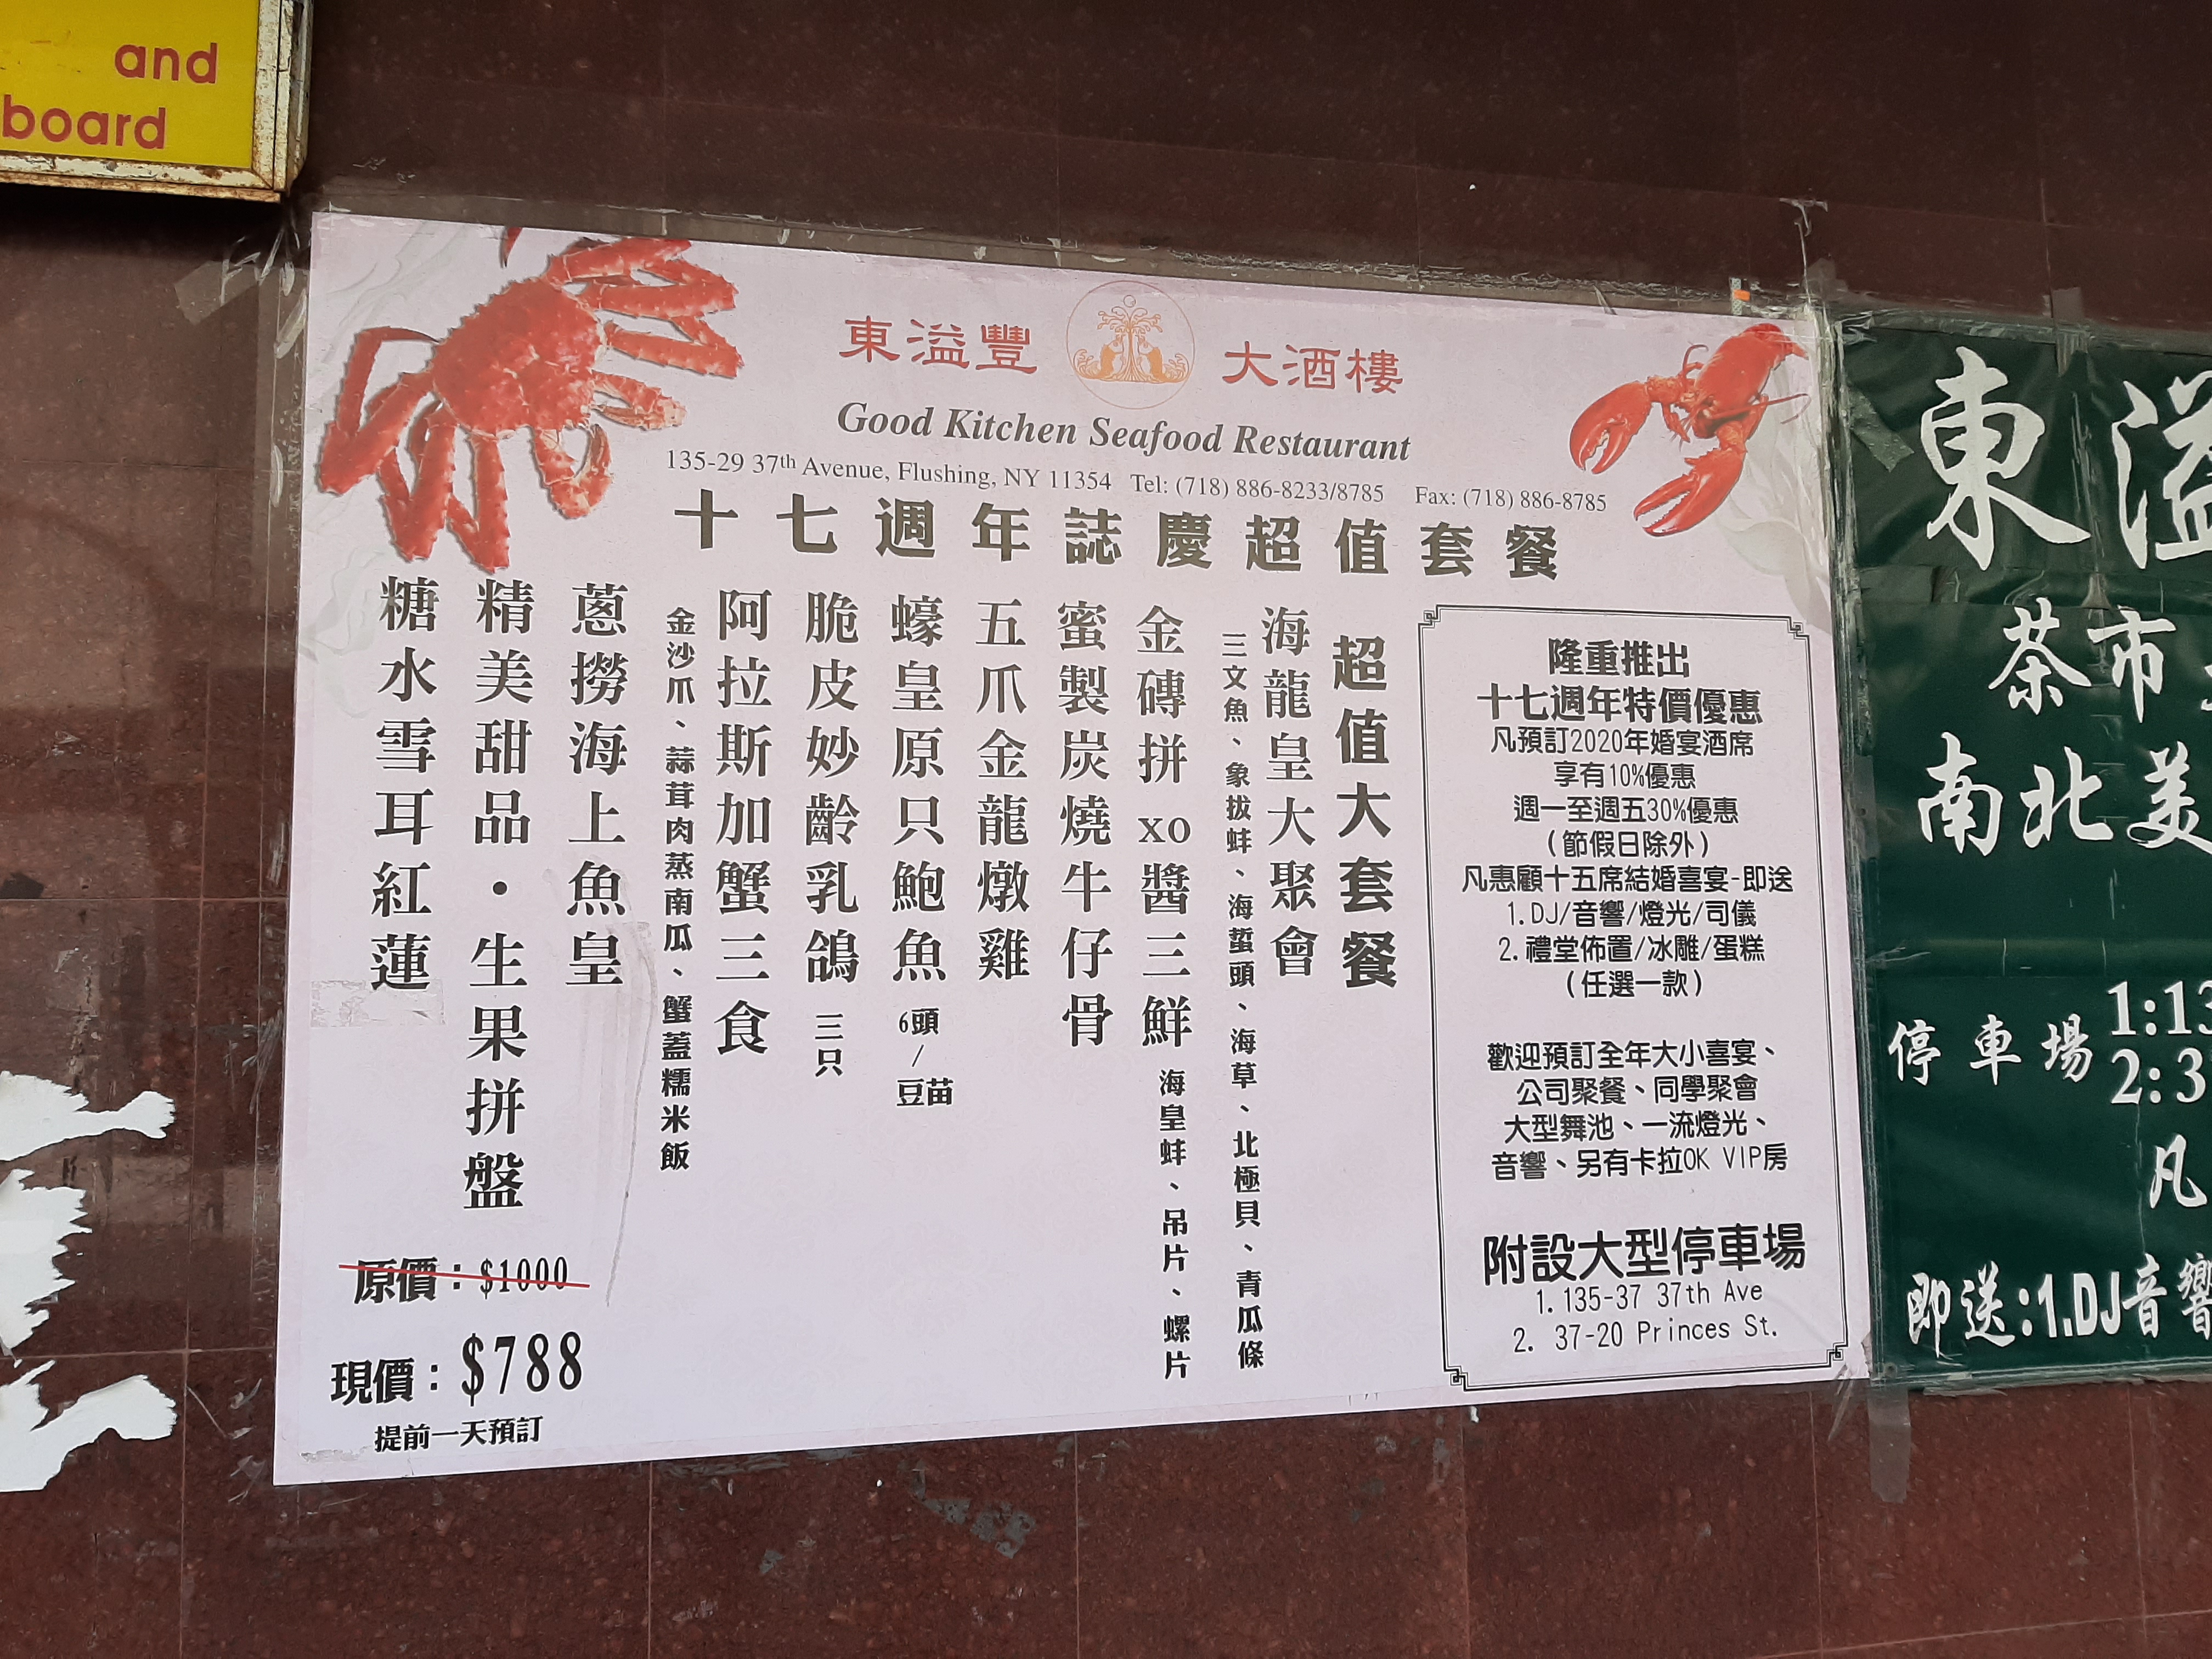 and
board
東溢豐 大酒樓
Good Kitchen Seafood Restaurant
135-29 37th Avenue, Flushing, NY 11354 Tel: (718) 886-8233/8785 Fax: (718) 886-8785
十七週年誌慶超值套餐
隆重推出
十七週年特價優惠
凡預訂2020年婚宴酒席
享有10%優惠
週一至週五30%優惠
(節假日除外)
凡惠顧十五席結婚喜宴-即送
1.DJ/音響/燈光/司儀
2.禮堂佈置/冰雕/蛋糕
(任選一款)
歡迎預訂全年大小喜宴、
公司聚餐、同學聚會
大型舞池、一流燈光、
音響、另有卡拉OK VIP房
附設大型停車場
1.135-37 37th Ave
2. 37-20 Princes St.
超值大套餐
海龍皇大聚會
三文魚、象拔蚌、海蜇頭、海草、北極貝、青瓜條
金磚拼xo醬三鮮 海皇蚌、吊片、螺片
蜜製炭燒牛仔骨
五爪金龍燉雞
蠔皇原只鮑魚 6頭/豆苗
脆皮妙齡乳鴿 三只
阿拉斯加蟹三食
金沙爪、蒜茸肉蒸南瓜、蟹蓋糯米飯
蔥撈海上魚皇
精美甜品・生果拼盤
糖水雪耳紅蓮
原價：$1000
現價：$788
提前一天預訂
東溢
茶市
南北美
停車場 1:13
2:3
凡
即送:1.DJ音響